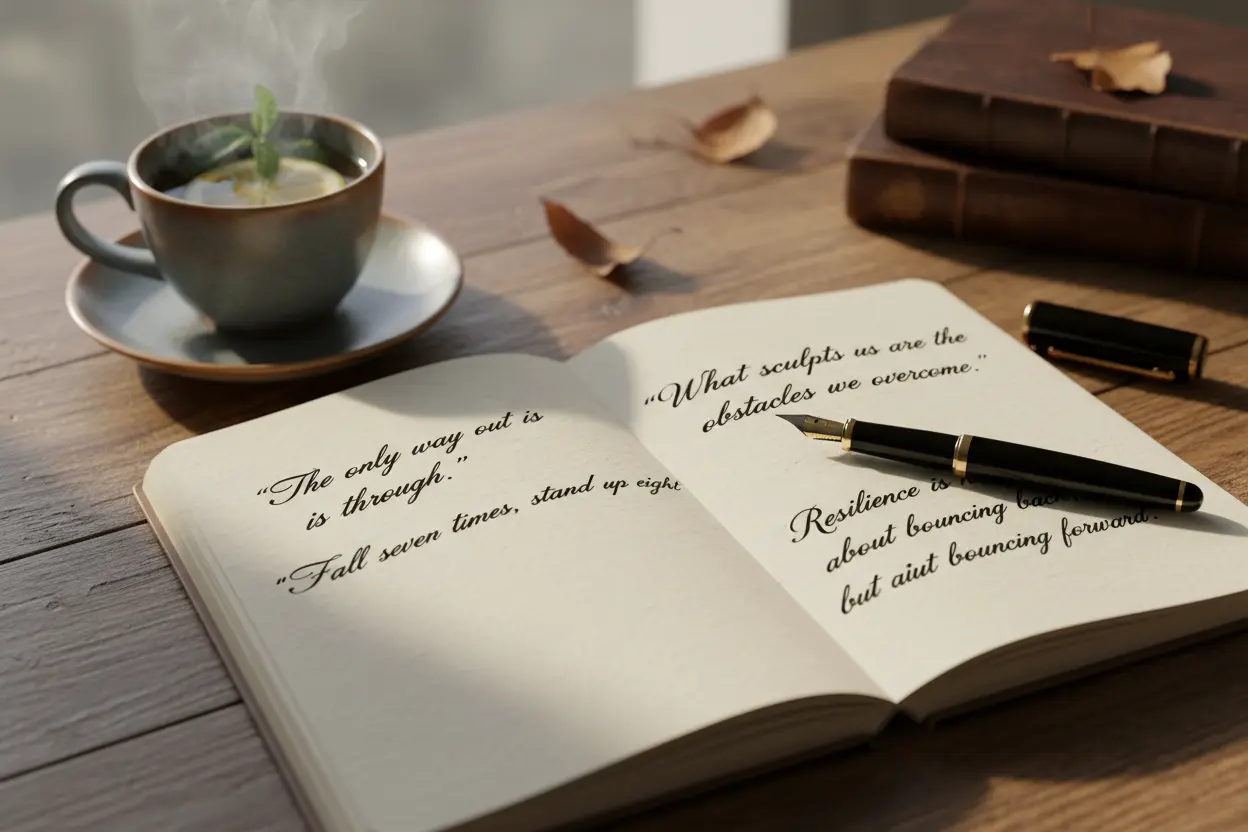 “The only way out is
is through.”
“Fall seven times, stand up eight
“What sculpts us are the
obstacles we overcome.”
Resilience is
about bouncing
but aiut bouncing forward.